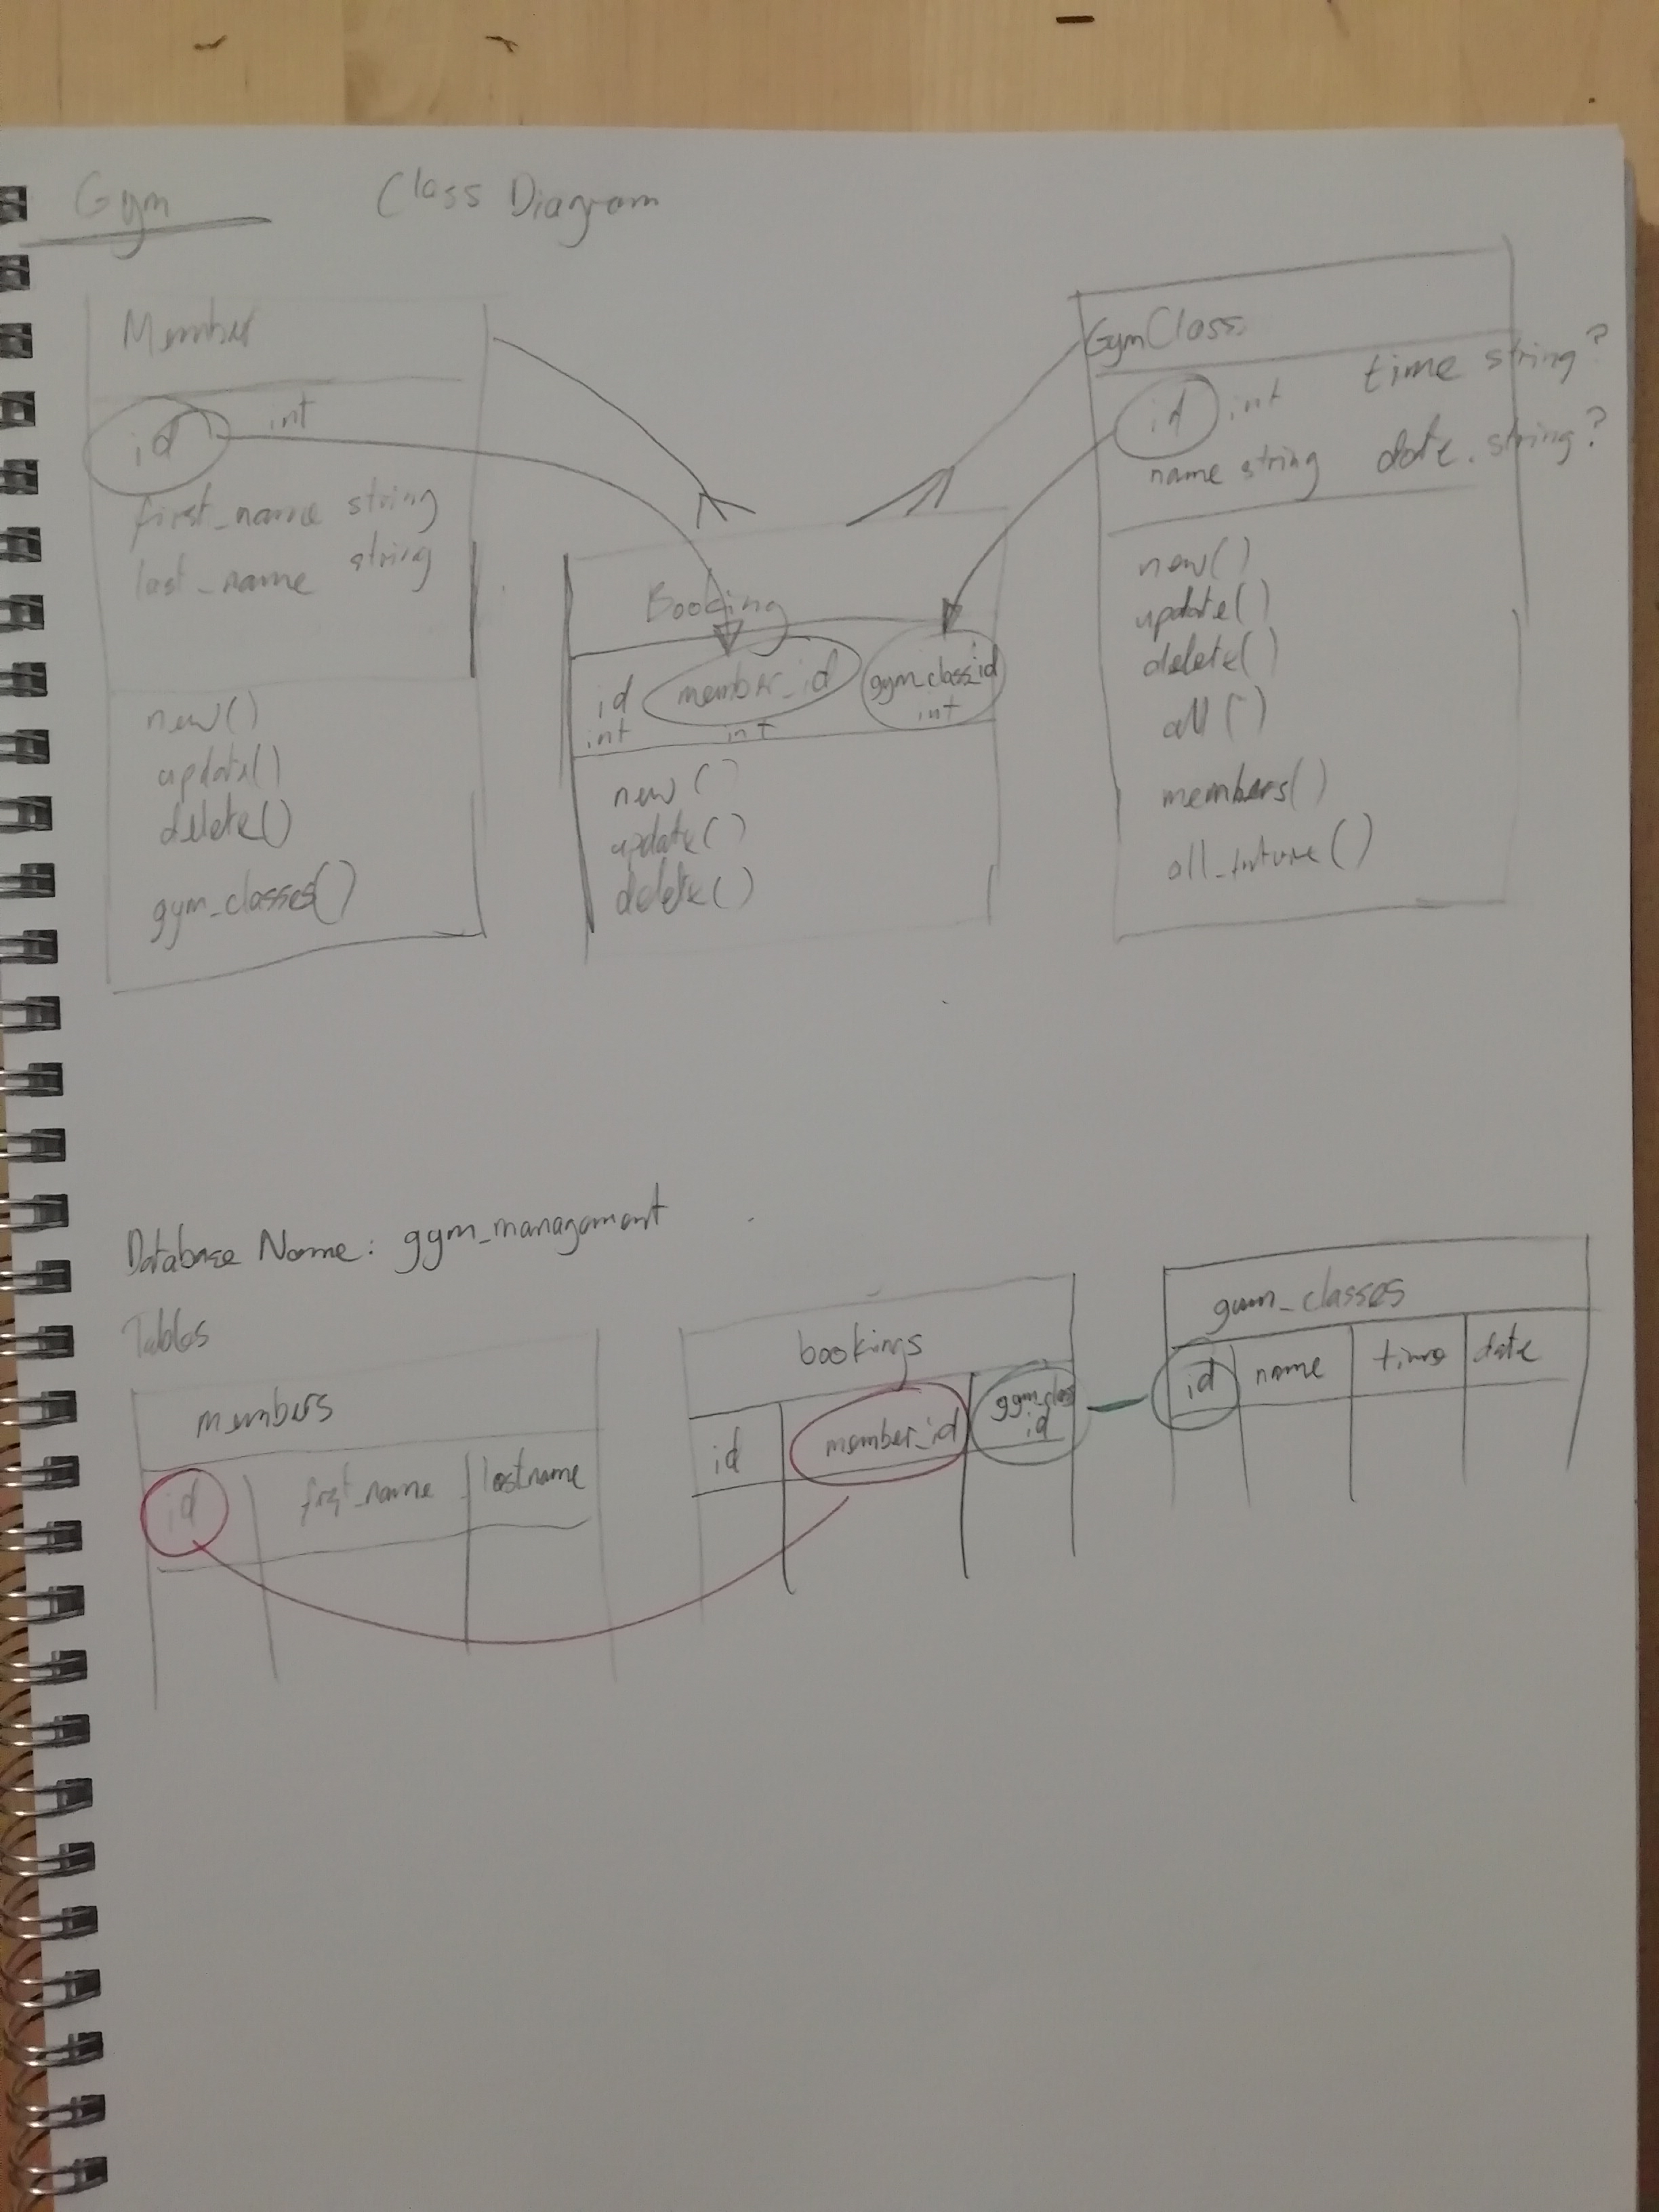 Gym Class Diagram
Member
id int
first_name string
last_name string
new()
update()
delete()
gym_classes()
Booking
id member_id gym_class_id
int int int
new()
update()
delete()
GymClass
id int time string?
name string date. string?
new()
update()
delete()
all()
members()
all_future()
Database Name: gym_management
Tables
members
id first_name lastname
bookings
id member_id gym_class
id
gym_classes
id name time date